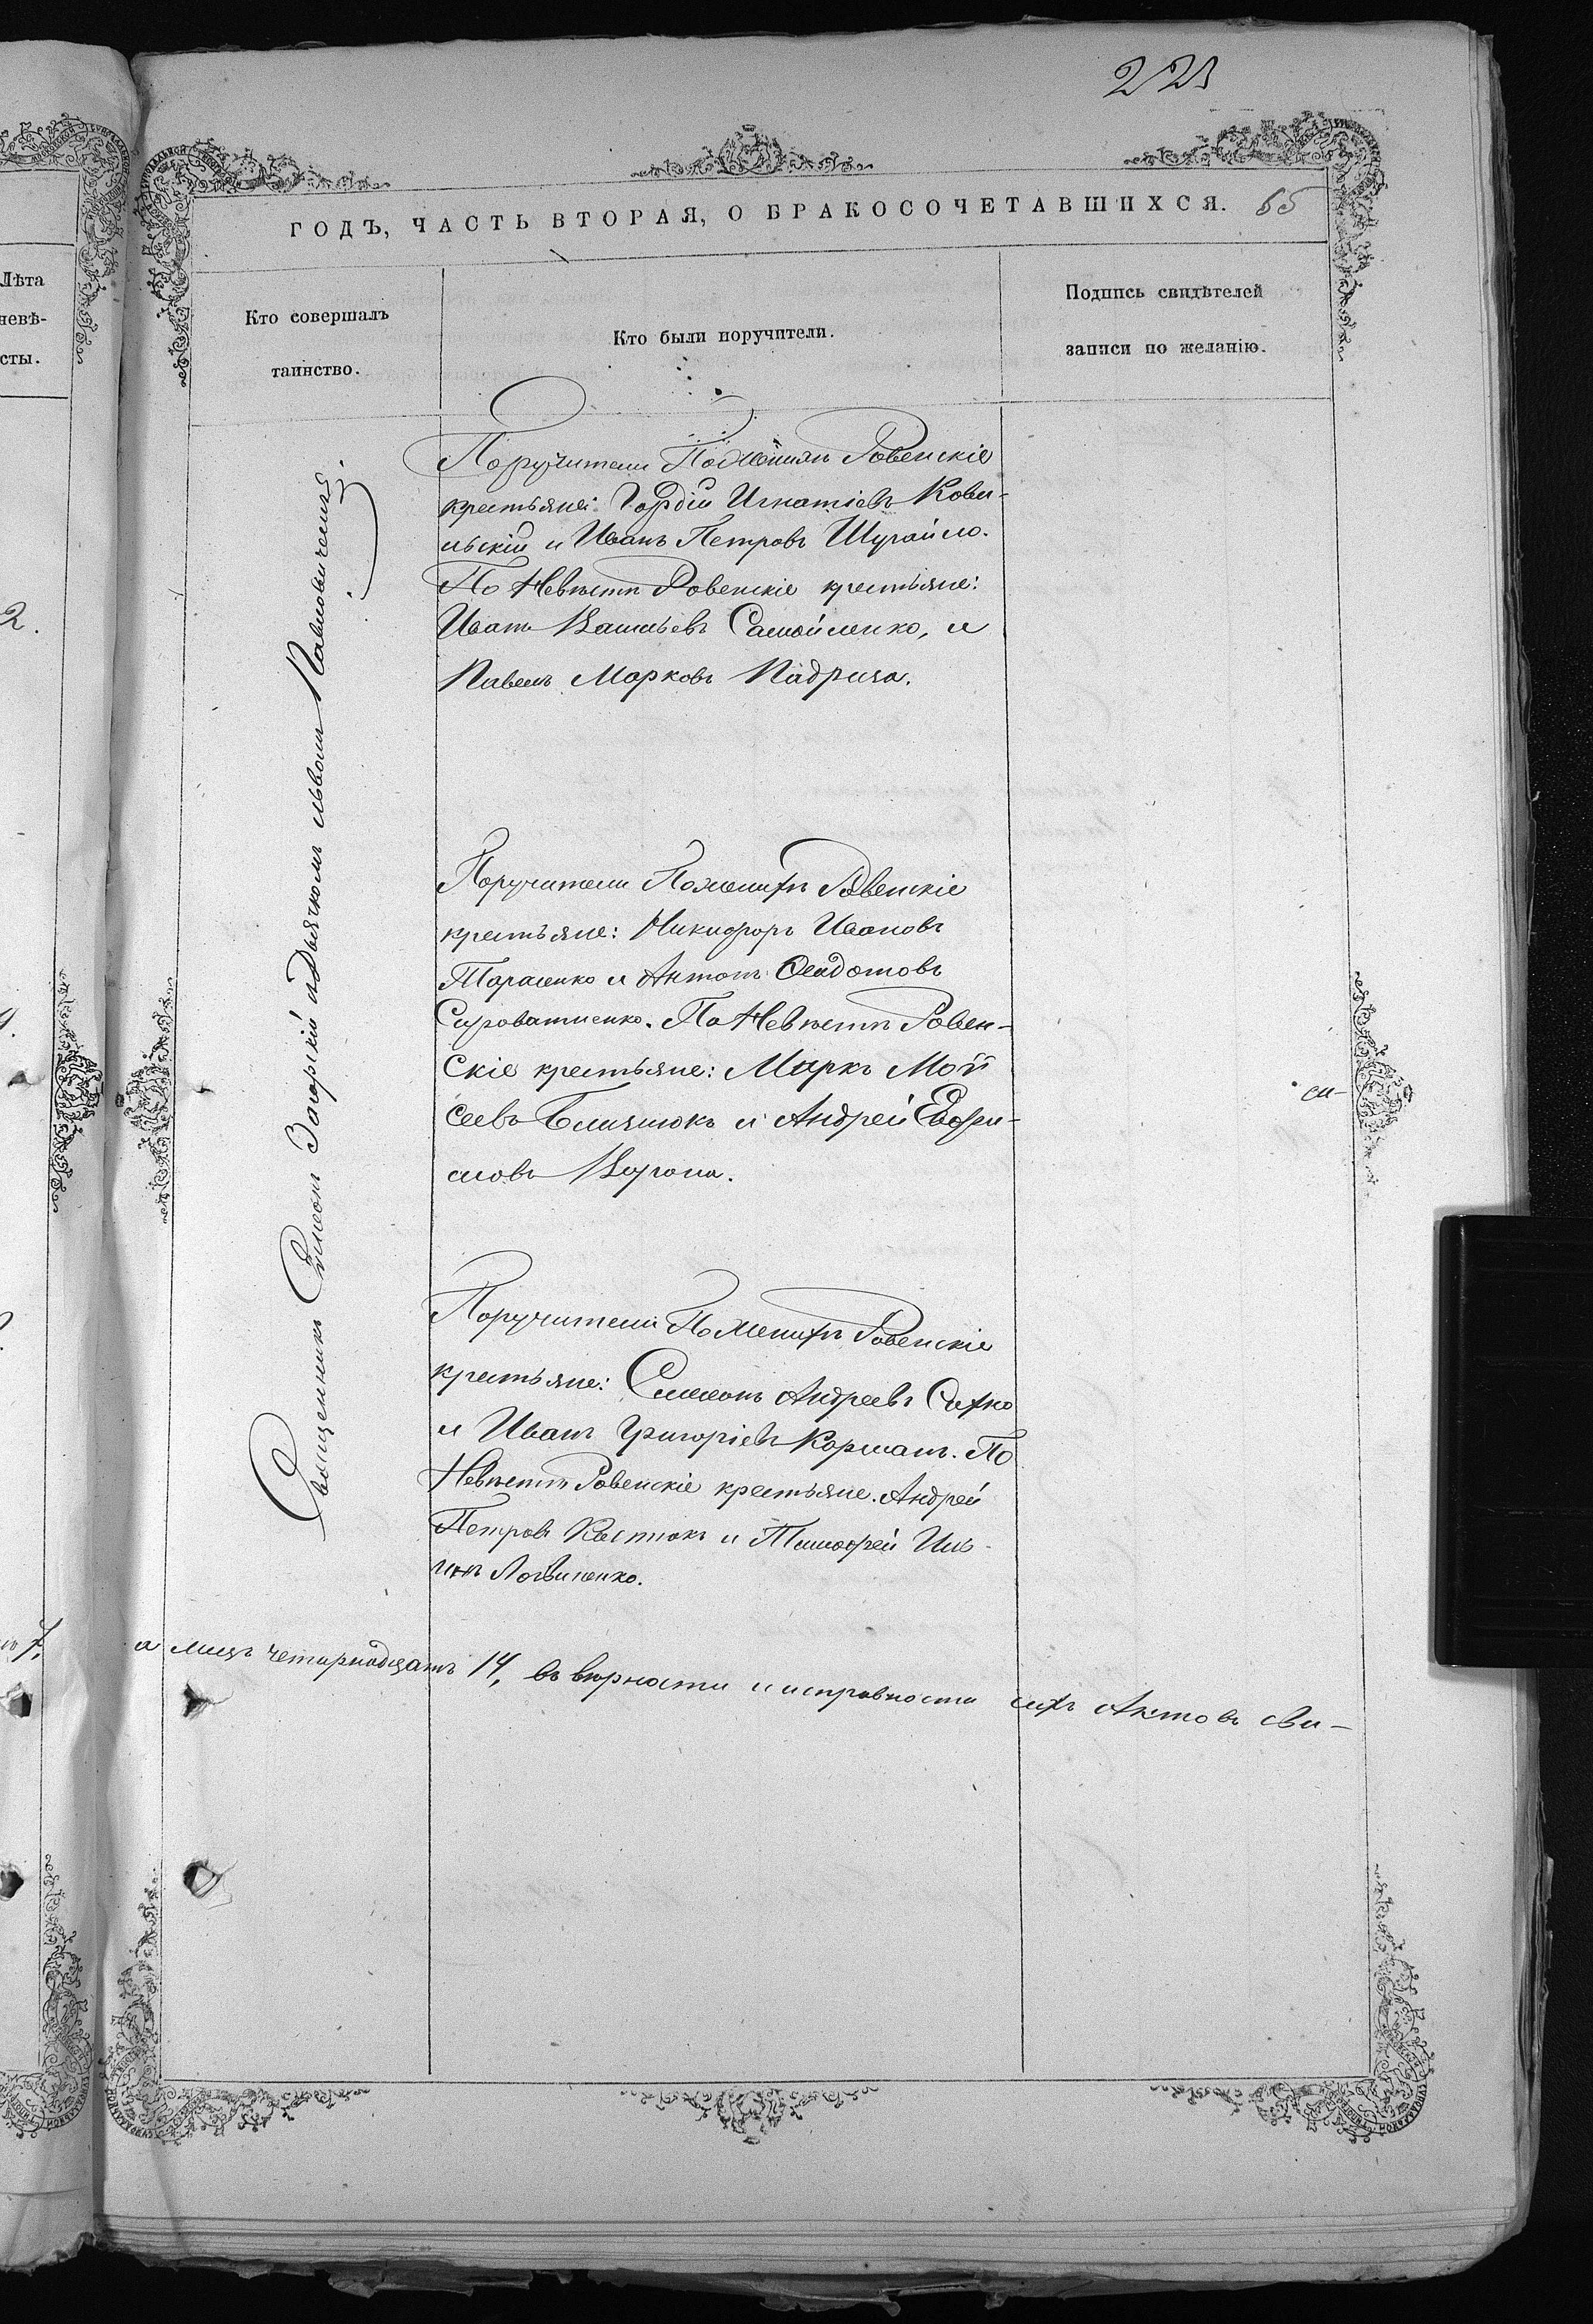 223
ГОДЪ, ЧАСТЬ ВТОРАЯ, О БРАКОСОЧЕТАВШИХСЯ. 65
Лѣта
невѣ-
сты.
Кто совершалъ
таинство.
Кто были поручители.
Подпись свидѣтелей
записи по желанію.
2.
7,
Священникъ Симеонъ Загорскій и Дьячкомъ Львомъ Павловичемъ
Поручители По Женихѣ Ровенскіе
крестьяне: Гордій Игнатіевъ Кове-
льскій и Иванъ Петровъ Шугайло.
По Невѣстѣ Ровенскіе крестьяне:
Иванъ Васильевъ Самойленко, и
Павелъ Марковъ
Поручители По женихѣ Ровенскіе
крестьяне: Никифоръ Ивановъ
Тарасенко и Антонъ Феодотовъ
Сироватченко. По Невѣстѣ Ровен-
скіе крестьяне: Маркъ Мой
сеевъ Близнюкъ и Андрей Евфи-
мовъ Ворона.
Поручители По Женихѣ Ровенскіе
крестьяне: Симеонъ Андреевъ
и Иванъ Григоріевъ Коршанъ. По
Невѣстѣ Ровенскіе крестьяне. Андрей
Петровъ и Тимофей Иль-
инъ Логвиненко.
си-
а лицъ четырнадцать 14, въ вѣрности и исправности сихъ Актовъ сви-